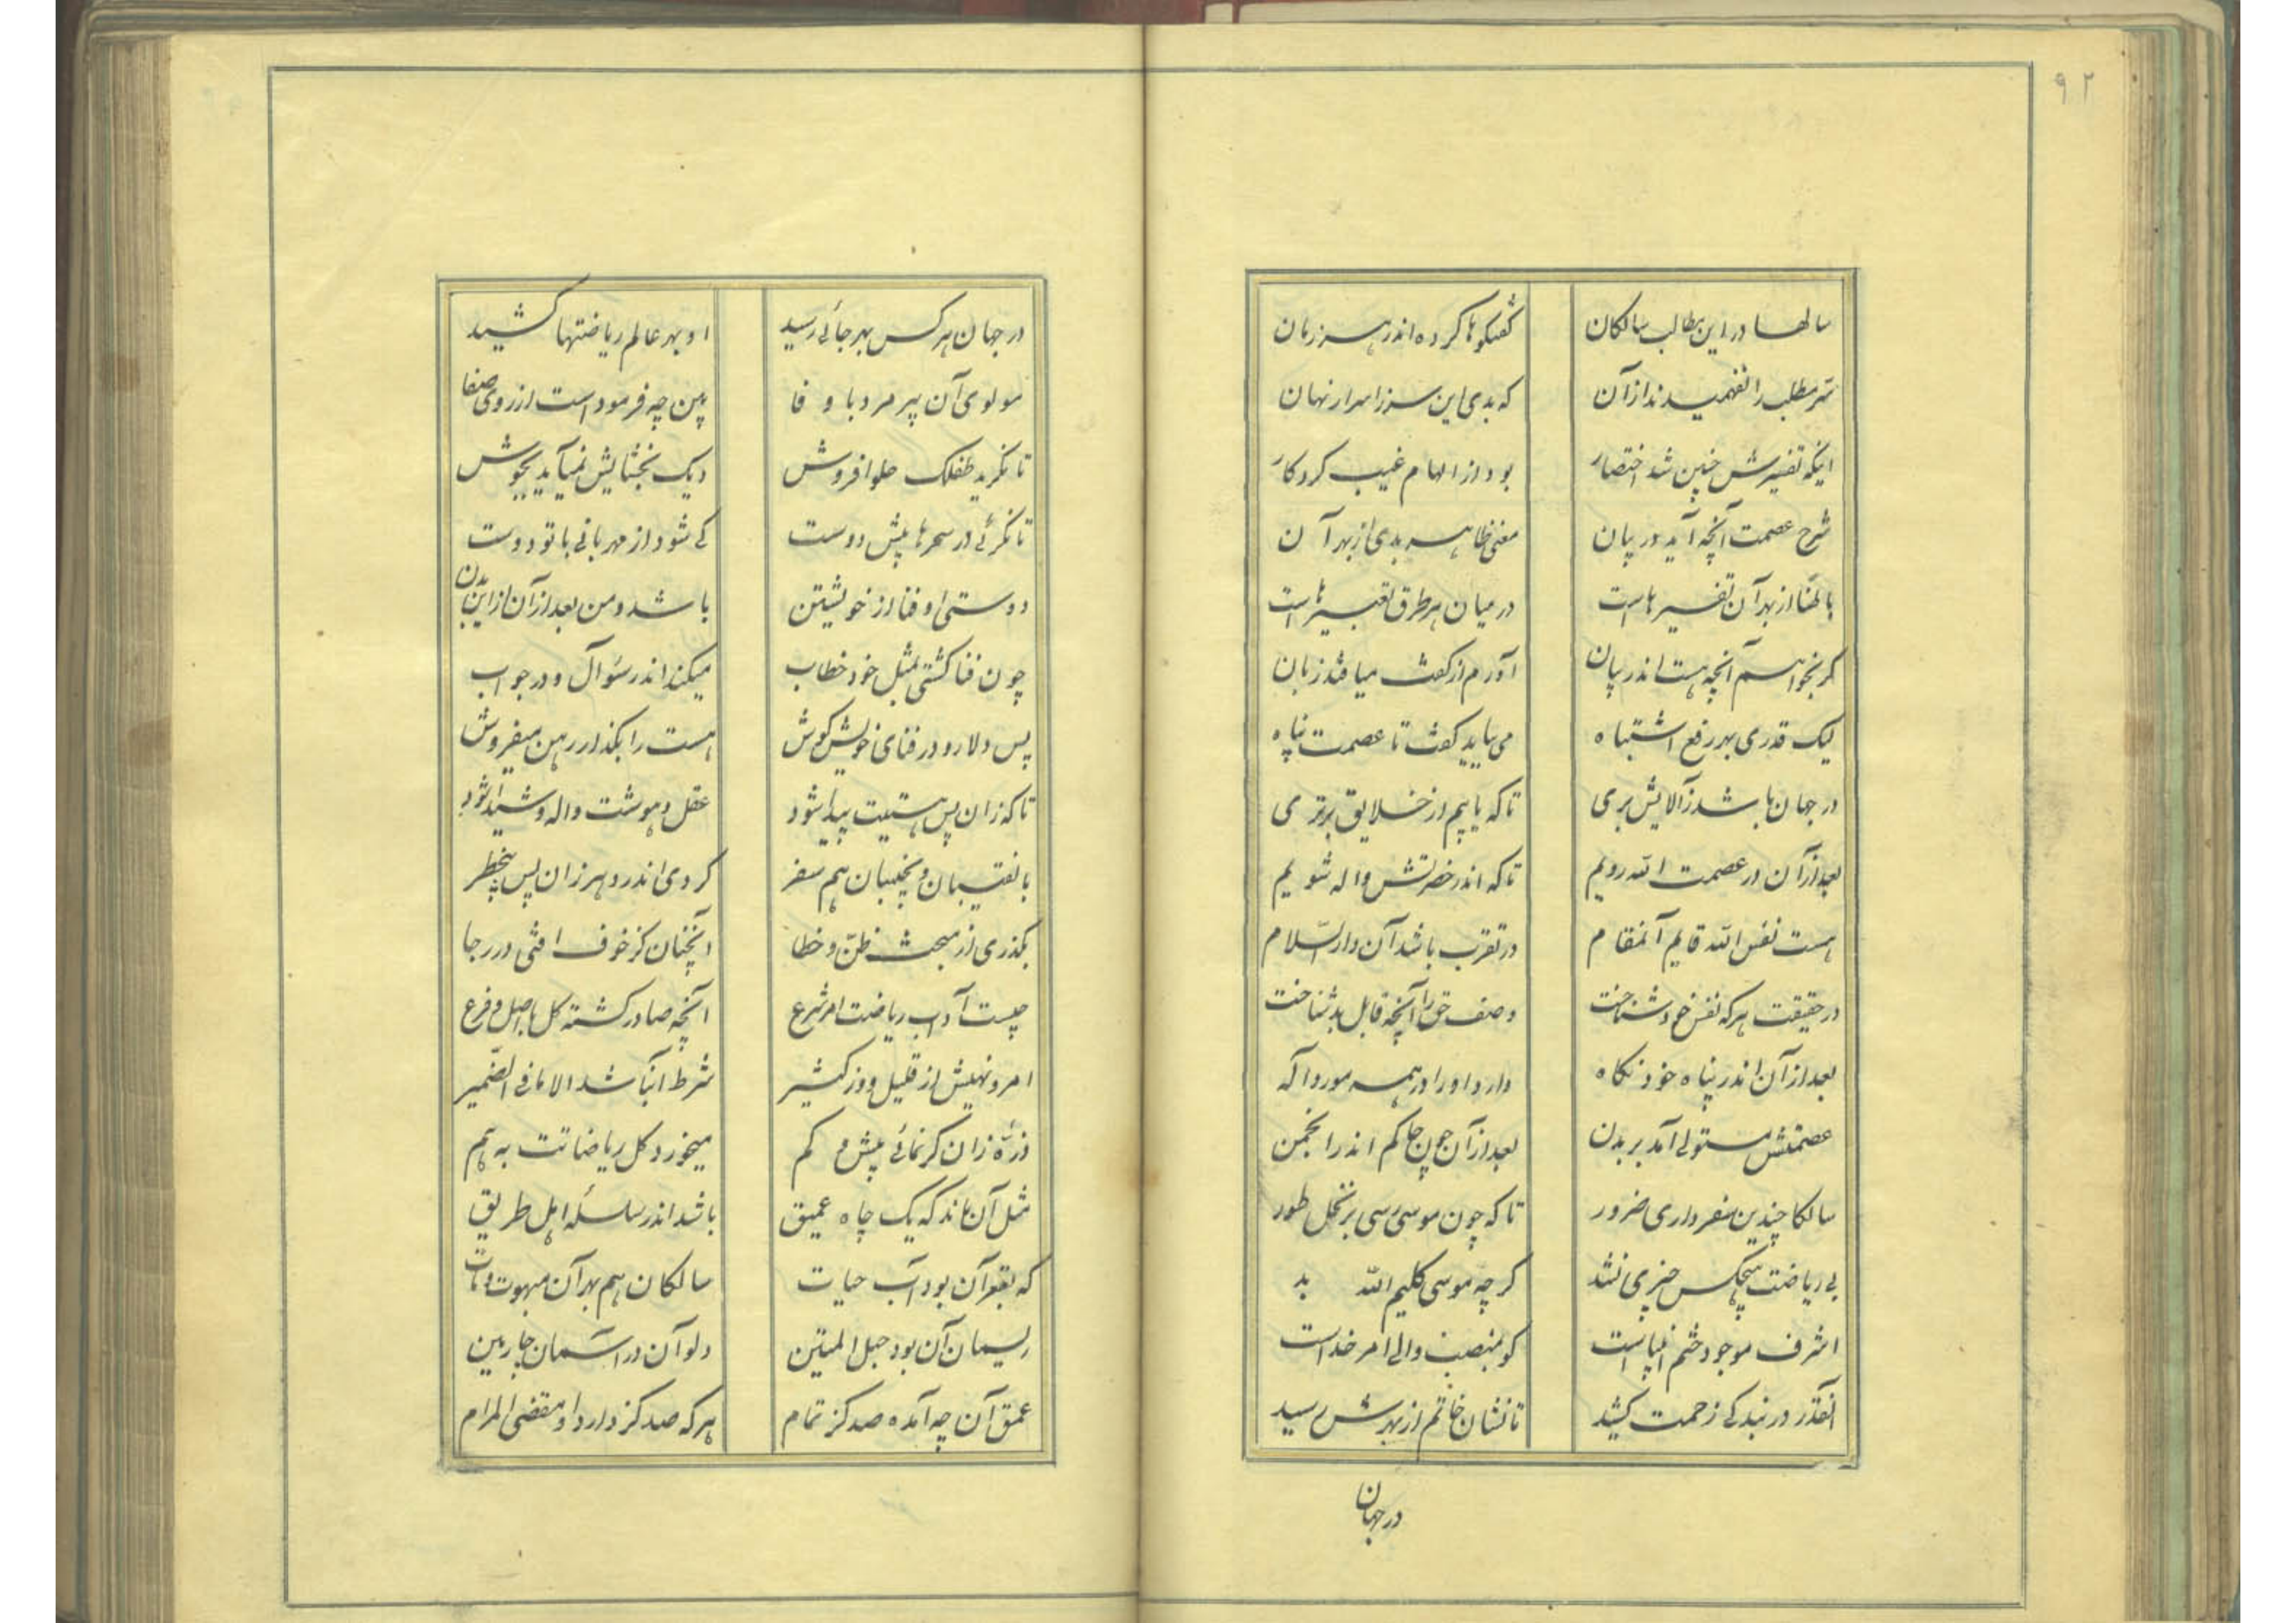 ۹۲
سالها در این مطالب سالکان گفتگوها کرده اندر هر زمان
سر مطلب را نفهمیدند از آن که بدی این سر ز اسرار نهان
اینکه تفسیرش چنین شد اختصار بود از الهام غیب کردکار
شرح عصمت آنچه آید در بیان معنی ظاهر بدی از بهر آن
باطنا از بهر آن تفسیرهاست در میان هر طرق تعبیرهاست
کر بخواهم آنچه هست اندر بیان آورم از گفت میافتد زبان
لیک قدری بهر رفع اشتباه می بباید گفت تا عصمت پناه
در جهان باشد ز آلایش بری تا که یابیم از خلایق برتری
بعد از آن در عصمت الله رویم تا که اندر حضرتش واله شویم
هست نفس الله قایم آنمقام در تقرب باشد آن دار السّلام
در حقیقت هر که نفس خود شناخت وصف حق را آنچه قابل بد شناخت
بعد از آن اندر پناه خود نگاه دارد او را در همه مورد اله
عصمتش مستولی آمد بر بدن بعد از آن چون حاکم اندر انجمن
سالکا چندین سفر داری ضرور تا که چون موسی رسی بر نخل طور
بی ریاضت هیچکس چیزی نشد کر چه موسی کلیم الله بد
اشرف موجود ختم انبیاست کو بمنصب والی امر خداست
آنقدر در بندکی زحمت کشید تا نشان خاتم از بهرش رسید
در جهان
در جهان هر کس بهر جائی رسید او بهر عالم ریاضتها کشید
مولوی آن پیر مرد با وفا بین چه فرمود است از روی صفا
تا نکرید طفلک حلوا فروش دیک بخشایش نمیآید بجوش
تا نکرئی در سحرها پیش دوست کی شود از مهربانی با تو دوست
دوستی او فنا از خویشتن باشد و من بعد از آن از این بدن
چون فنا کشتی بمثل خود خطاب میکند اندر سؤآل و در جواب
پس دلا رو در فنای خویش کوش هست را بکذار رهن میفروش
تا که زان پس هستیت پیدا شود عقل و هوشت واله و شیدا شود
با نقیبان و نجیبان هم سفر کردی اندر دهر زان پس بیخطر
بکذری از مبحث ظنّ و خطا آنچنان کز خوف افتی در رجا
چیست آداب ریاضت امر شرع آنچه صادر کشته کل با اصل و فرع
امر و نهیش از قلیل و وز کثیر شرط آن باشد الا ما فی الضّمیر
ذرّهٔ زان کر نمائی بیش و کم میخورد کل ریاضاتت به هم
مثل آن ماند که یک چاه عمیق باشد اندر سلسلهٔ اهل طریق
که بقعر آن بود آب حیات سالکان هم بهر آن مبهوت و مات
ریسمان آن بود حبل المتین دلو آن در آسمان چارمین
عمق آن چه آمده صد کز تمام هر که صد کز دارد او مقضی المرام